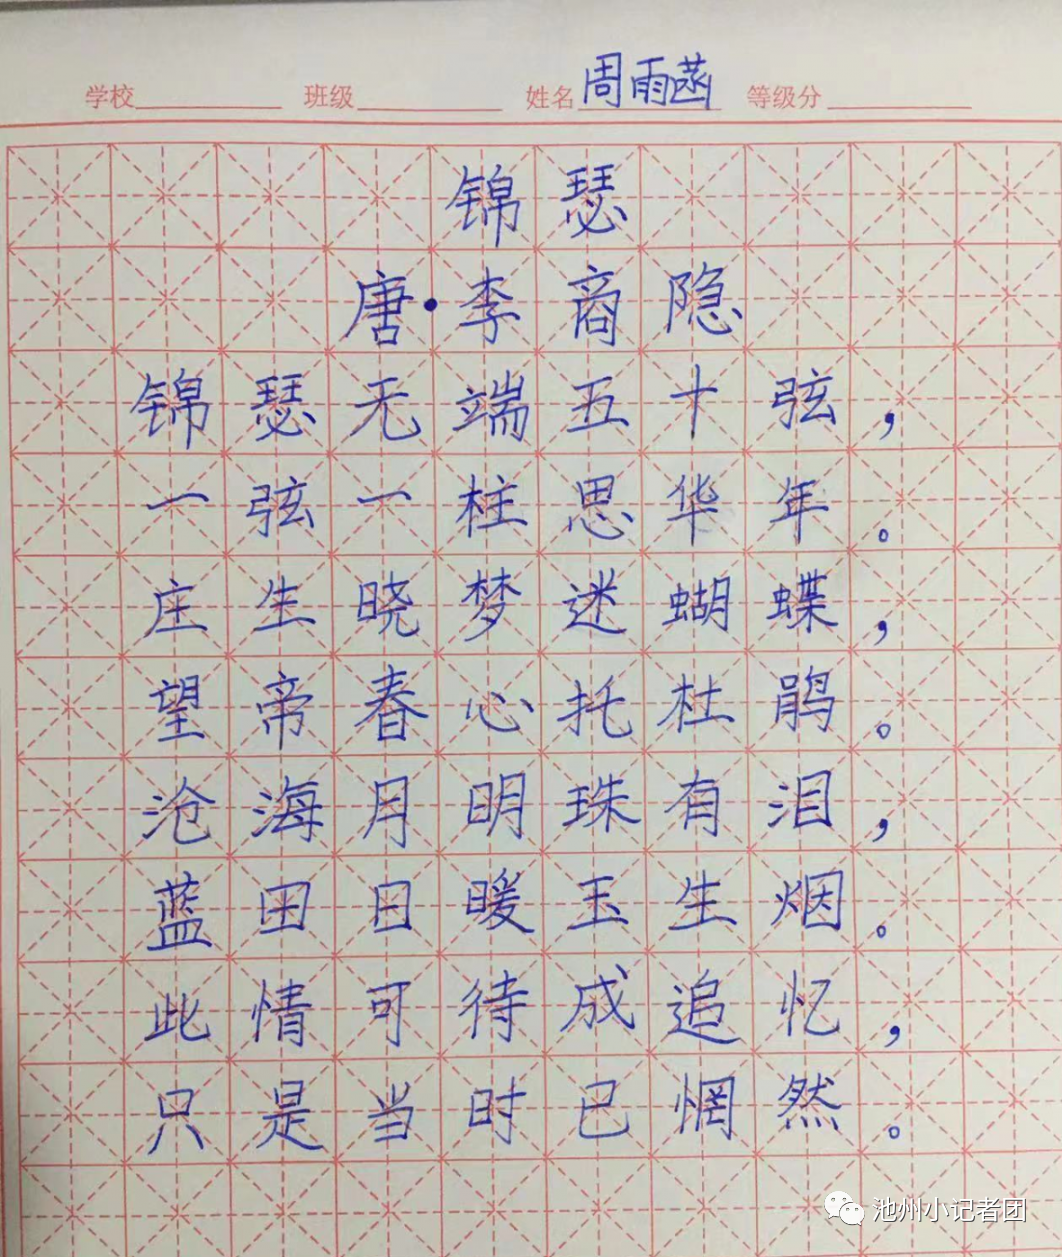 学校 班级 姓名 周雨菡 等级分
锦瑟
唐·李商隐
锦瑟无端五十弦，
一弦一柱思华年。
庄生晓梦迷蝴蝶，
望帝春心托杜鹃。
沧海月明珠有泪，
蓝田日暖玉生烟。
此情可待成追忆，
只是当时已惘然。
池州小记者团